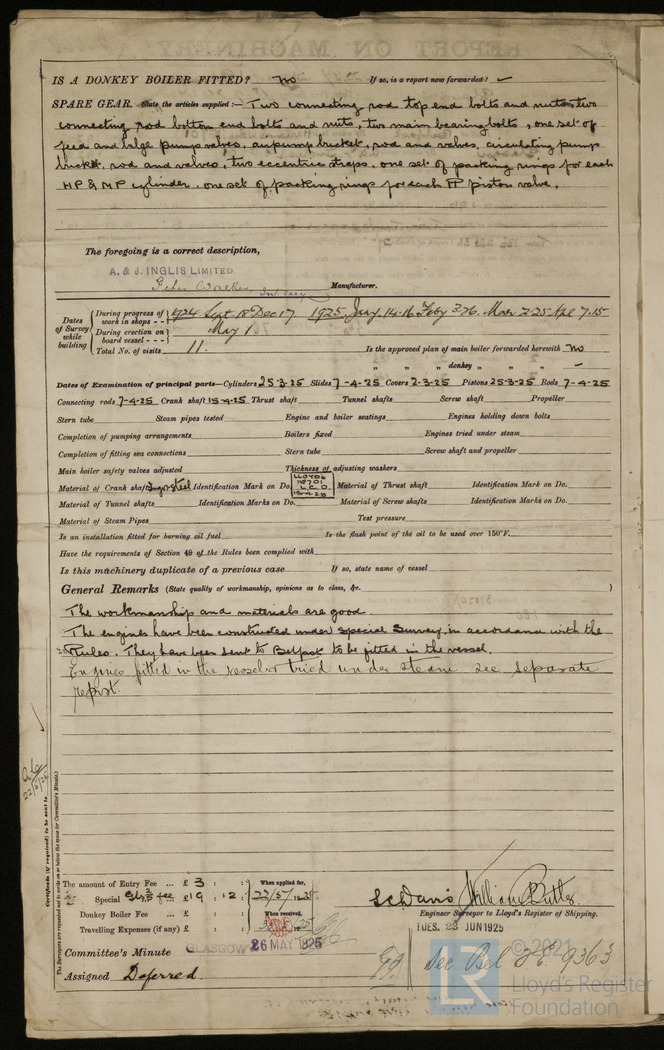 IS A DONKEY BOILER FITTED? No If so, is a report now forwarded? ✓
SPARE GEAR. State the articles supplied:— Two connecting rod top end bolts and nuts, two
connecting rod bottom end bolts and nuts, two main bearing bolts, one set of
feed and bilge pump valves, air pump bucket, rod and valves, circulating pump
bucket, rod and valves, two eccentric straps, one set of packing rings for each
HP & MP cylinder, one set of packing rings for each piston valve.
The foregoing is a correct description,
A. & J. INGLIS LIMITED.
Manufacturer.
Dates of Survey while building
During progress of work in shops - - 1924 Sept. 18 Dec 17 1925 Jany. 14.16 Feby 3.26. Mar 2.25 Apl 7.15
During erection on board vessel - - - May 1.
Total No. of visits 11. Is the approved plan of main boiler forwarded herewith No
" " " donkey " " " –
Dates of Examination of principal parts—Cylinders 25-3-25 Slides 7-4-25 Covers 2-3-25 Pistons 25-3-25 Rods 7-4-25
Connecting rods 7-4-25 Crank shaft 15-4-25 Thrust shaft Tunnel shafts Screw shaft Propeller
Stern tube Steam pipes tested Engine and boiler seatings Engines holding down bolts
Completion of pumping arrangements Boilers fixed Engines tried under steam
Completion of fitting sea connections Stern tube Screw shaft and propeller
Main boiler safety valves adjusted Thickness of adjusting washers
Material of Crank shaft Ingot steel Identification Mark on Do. LLOYDS L.C.D. 15-4-25 Material of Thrust shaft Identification Mark on Do.
Material of Tunnel shafts Identification Marks on Do. Material of Screw shafts Identification Marks on Do.
Material of Steam Pipes Test pressure
Is an installation fitted for burning oil fuel Is the flash point of the oil to be used over 150°F.
Have the requirements of Section 49 of the Rules been complied with
Is this machinery duplicate of a previous case If so, state name of vessel
General Remarks (State quality of workmanship, opinions as to class, &c. )
The workmanship and materials are good.
The engines have been constructed under special survey in accordance with the
Rules. They have been sent to Belfast to be fitted in the vessel.
Engines fitted in the vessel & tried under steam see separate
report.
Certificate (if required) to be sent to
The Surveyors are requested not to write on or below the space for Committee's Minute.
The amount of Entry Fee ... £ 3 : : When applied for,
Special ... £ 19 : 12 : 22/5/1925
Donkey Boiler Fee ... £ : : When received,
Travelling Expenses (if any) £ : :
Engineer Surveyor to Lloyd's Register of Shipping.
Committee's Minute GLASGOW 26 MAY 1925 TUES. 23 JUN 1925
Assigned Deferred See Bel JE 9363
© 2021
Lloyd's Register
Foundation